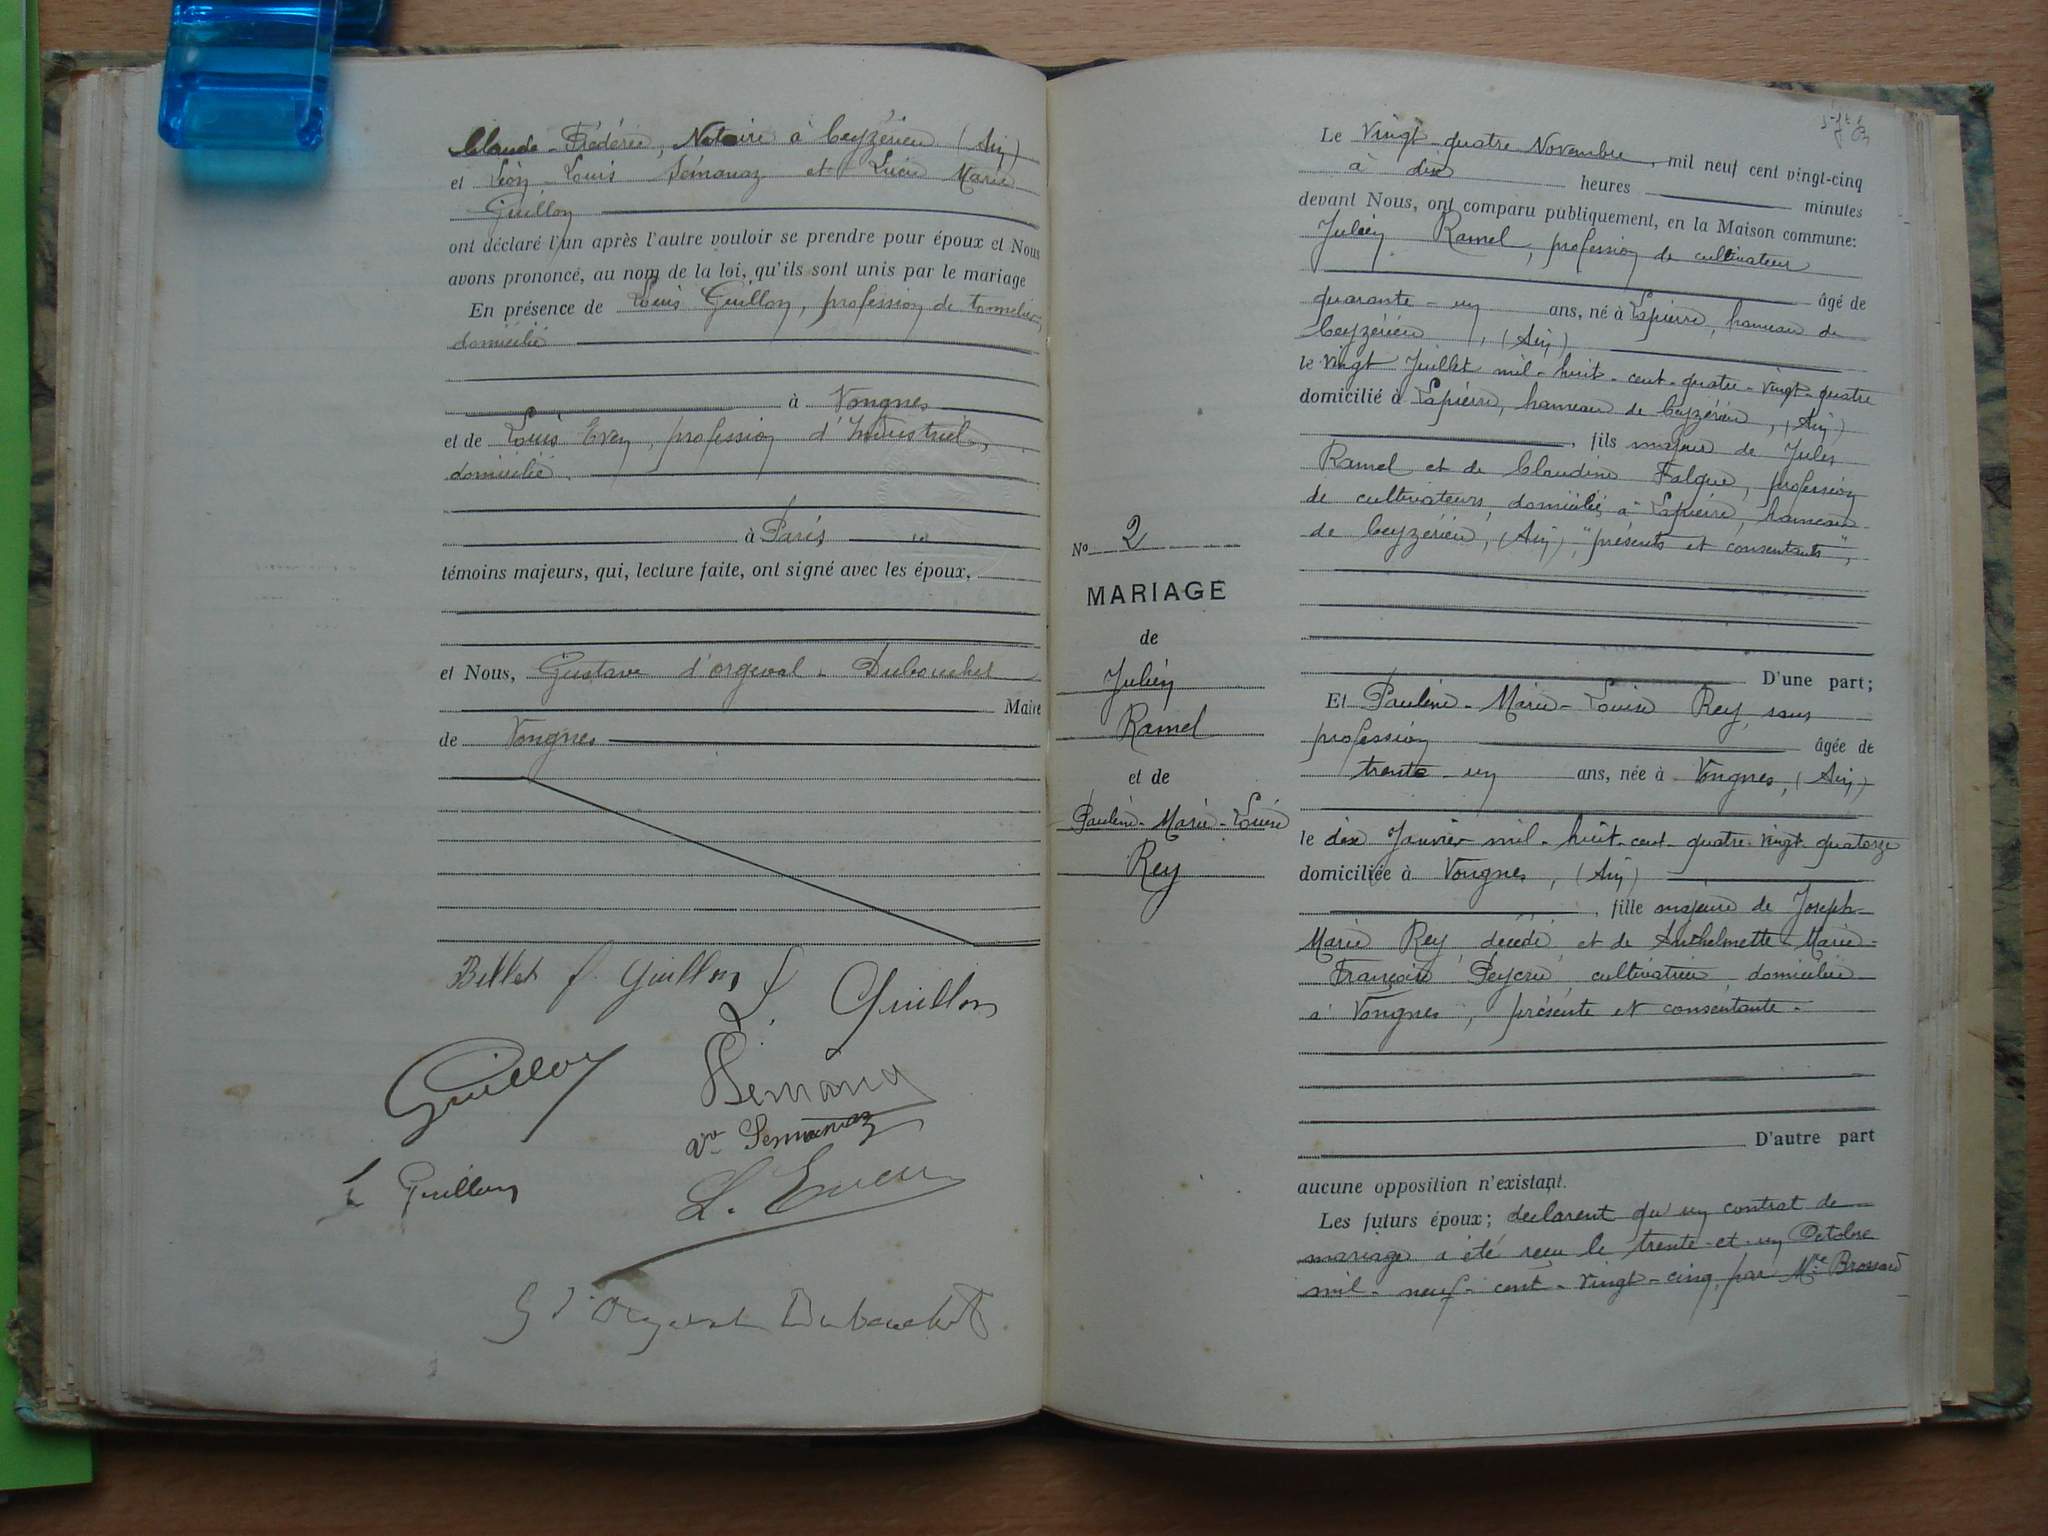 Claude-Frédéric, Notaire à Ceyzérieu (Ain)
et Léon Louis Sémanaz et Lucie Marie
Guillon
ont déclaré l'un après l'autre vouloir se prendre pour époux et Nous
avons prononcé, au nom de la loi, qu'ils sont unis par le mariage
En présence de Louis Guillon, profession de tonnelier,
domicilié
à Vongnes
et de Louis Even, profession d'Industriel,
domicilié
à Paris
témoins majeurs, qui, lecture faite, ont signé avec les époux,
et Nous, Gustave d'orgeval-Dubouchet
Maire
de Vongnes
Billet f. Guillon
L. Guillon
Guillon
Sémanaz
Vve Semanaz
L. Guillon
L. Even
G d'Orgeval Dubouchet
No 2
MARIAGE
de
Julien
Ramel
et de
Pauline-Marie-Louise
Rey
Le vingt-quatre Novembre, mil neuf cent vingt-cinq
à dix heures minutes
devant Nous, ont comparu publiquement, en la Maison commune:
Julien Ramel, profession de cultivateur
âgé de
quarante-un ans, né à Lapierre, hameau de
Ceyzérieu, (Ain)
le vingt Juillet mil-huit-cent-quatre-vingt-quatre
domicilié à Lapierre, hameau de Ceyzérieu, (Ain)
, fils majeur de Jules
Ramel et de Claudine Falque, profession
de cultivateurs, domiciliés à Lapierre, hameau
de Ceyzérieu, (Ain), "présents et consentants",
D'une part;
Et Pauline-Marie-Louise Rey, sans
profession âgée de
trente-un ans, née à Vongnes, (Ain)
le dix Janvier mil-huit-cent-quatre-vingt-quatorze
domiciliée à Vongnes, (Ain)
, fille majeure de Joseph-
Marie Rey décédé et de Anthelmette-Marie-
Françoise Peycru, cultivatrice, domiciliée
à Vongnes, présente et consentante.
D'autre part
aucune opposition n'existant.
Les futurs époux; déclarent qu'un contrat de
mariage a été reçu le trente-et-un Octobre
mil-neuf-cent-vingt-cinq, par Me Brossard